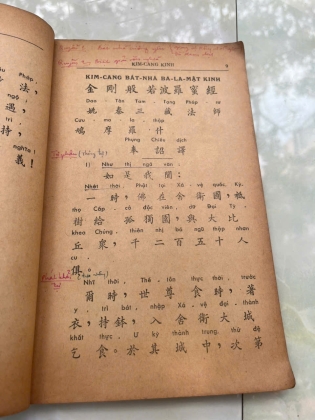 Pháp,
法,
遇,
trì,
持,
nghĩa!
義!
KIM-CANG KINH
9
KIM-CANG BÁT-NHÃ BA-LA-MẬT KINH
金剛般若波羅蜜經
Dao Tần Tam Tạng Pháp sư
姚秦三藏法師
Cưu ma la thập
鳩摩羅什
Phụng Chiếu dịch
奉詔譯
1) Như thị ngã văn:
如是我聞:
Nhất thời, Phật tại Xá vệ quốc, Kỳ
一時,佛在舍衛國,祇
thọ Cấp cô độc viên, dữ Đại Tỳ
樹給孤獨園,與大比
kheo Chúng, thiên nhị bá ngũ thập nhơn
丘眾,千二百五十人
俱。
Nhĩ thời, Thế tôn thực thời, trước
爾時,世尊食時,著
y, trì bát, nhập Xá vệ đại thành
衣,持鉢,入舍衛大城
khất thực. Ư kỳ thành trung, thứ đệ
乞食。於其城中,次第